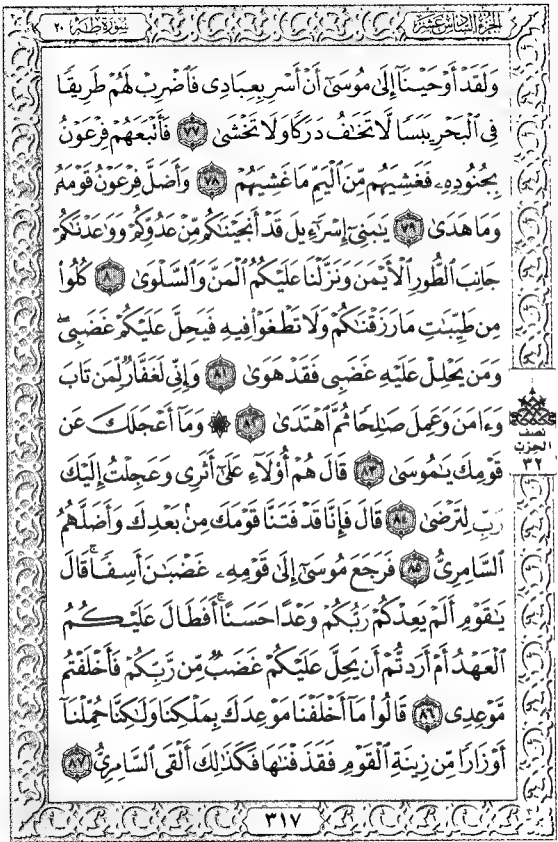 سُورَةُ طه ٢٠
الجُزْءُ السَّادِسَ عَشَرَ
وَلَقَدْ أَوْحَيْنَآ إِلَىٰ مُوسَىٰٓ أَنْ أَسْرِ بِعِبَادِى فَٱضْرِبْ لَهُمْ طَرِيقًا
فِى ٱلْبَحْرِ يَبَسًا لَّا تَخَـٰفُ دَرَكًا وَلَا تَخْشَىٰ ٧٧ فَأَتْبَعَهُمْ فِرْعَوْنُ
بِجُنُودِهِۦ فَغَشِيَهُم مِّنَ ٱلْيَمِّ مَا غَشِيَهُمْ ٧٨ وَأَضَلَّ فِرْعَوْنُ قَوْمَهُۥ
وَمَا هَدَىٰ ٧٩ يَـٰبَنِىٓ إِسْرَٰٓءِيلَ قَدْ أَنجَيْنَـٰكُم مِّنْ عَدُوِّكُمْ وَوَٰعَدْنَـٰكُمْ
جَانِبَ ٱلطُّورِ ٱلْأَيْمَنَ وَنَزَّلْنَا عَلَيْكُمُ ٱلْمَنَّ وَٱلسَّلْوَىٰ ٨٠ كُلُوا۟
مِن طَيِّبَـٰتِ مَا رَزَقْنَـٰكُمْ وَلَا تَطْغَوْا۟ فِيهِ فَيَحِلَّ عَلَيْكُمْ غَضَبِى ۖ
وَمَن يَحْلِلْ عَلَيْهِ غَضَبِى فَقَدْ هَوَىٰ ٨١ وَإِنِّى لَغَفَّارٌ لِّمَن تَابَ
وَءَامَنَ وَعَمِلَ صَـٰلِحًا ثُمَّ ٱهْتَدَىٰ ٨٢ ۞ وَمَآ أَعْجَلَكَ عَن
قَوْمِكَ يَـٰمُوسَىٰ ٨٣ قَالَ هُمْ أُو۟لَآءِ عَلَىٰٓ أَثَرِى وَعَجِلْتُ إِلَيْكَ
رَبِّ لِتَرْضَىٰ ٨٤ قَالَ فَإِنَّا قَدْ فَتَنَّا قَوْمَكَ مِنۢ بَعْدِكَ وَأَضَلَّهُمُ
ٱلسَّامِرِىُّ ٨٥ فَرَجَعَ مُوسَىٰٓ إِلَىٰ قَوْمِهِۦ غَضْبَـٰنَ أَسِفًا ۚ قَالَ
يَـٰقَوْمِ أَلَمْ يَعِدْكُمْ رَبُّكُمْ وَعْدًا حَسَنًا ۚ أَفَطَالَ عَلَيْكُمُ
ٱلْعَهْدُ أَمْ أَرَدتُّمْ أَن يَحِلَّ عَلَيْكُمْ غَضَبٌ مِّن رَّبِّكُمْ فَأَخْلَفْتُم
مَّوْعِدِى ٨٦ قَالُوا۟ مَآ أَخْلَفْنَا مَوْعِدَكَ بِمَلْكِنَا وَلَـٰكِنَّا حُمِّلْنَآ
أَوْزَارًا مِّن زِينَةِ ٱلْقَوْمِ فَقَذَفْنَـٰهَا فَكَذَٰلِكَ أَلْقَى ٱلسَّامِرِىُّ ٨٧
نصف
الحزب
٣٢
٣١٧